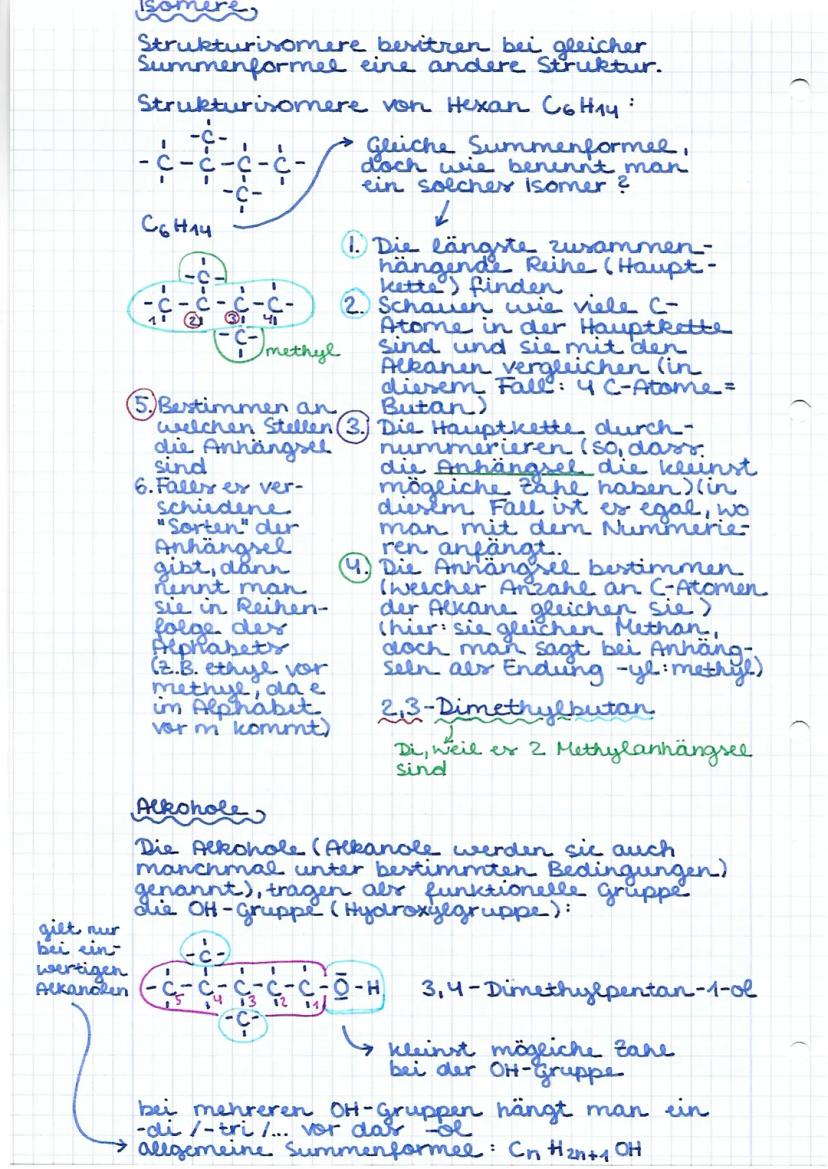 Isomere
Strukturisomere besitzen bei gleicher
Summenformel eine andere Struktur.
Strukturisomere von Hexan C6H14:
-C-
-C-C-C-C-
-C-
C6H14
Gleiche Summenformel,
doch wie benennt man
ein solches Isomer?
1. Die längste zusammen-
hängende Reihe (Haupt-
kette) finden
2. Schauen wie viele C-
Atome in der Hauptkette
sind und sie mit den
Alkanen vergleichen (in
diesem Fall: 4 C-Atome =
Butan)
3. Die Hauptkette durch-
nummerieren (so, dass
die Anhängsel die kleinst
mögliche Zahl haben) (in
diesem Fall ist es egal, wo
man mit dem Nummerie-
ren anfängt.
4. Die Anhängsel bestimmen
(welcher Anzahl an C-Atomen
der Alkane gleichen sie)
(hier: sie gleichen Methan,
doch man sagt bei Anhäng-
seln als Endung -yl: methyl)
-C-
-C-C-C-C-
1 2 3 4
-C- methyl
5. Bestimmen an
welchen Stellen
die Anhängsel
sind
6. Falls es ver-
schiedene
"Sorten" der
Anhängsel
gibt, dann
nennt man
sie in Reihen-
folge des
Alphabets
(z.B. ethyl vor
methyl, da e
im Alphabet
vor m kommt)
2,3-Dimethylbutan
Di, weil es 2 Methylanhängsel
sind
Alkohole
Die Alkohole (Alkanole werden sie auch
manchmal unter bestimmten Bedingungen)
genannt), tragen als funktionelle Gruppe
die OH-Gruppe (Hydroxylgruppe):
gilt nur
bei ein-
wertigen
Alkanolen
-C-
-C-C-C-C-C-O-H
5 4 3 2 1
-C-
3,4-Dimethylpentan-1-ol
kleinst mögliche Zahl
bei der OH-Gruppe
bei mehreren OH-Gruppen hängt man ein
-di /-tri /... vor das -ol
allgemeine Summenformel: CnH2n+1OH